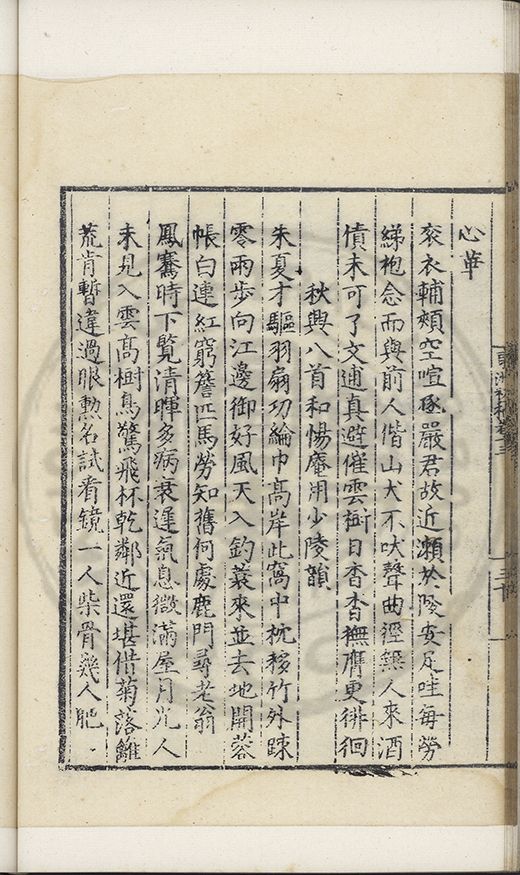 心華
衮衣輔頰空喧豗嚴君故近瀨於陵安足哇每勞
綈袍念而與前人偕山犬不吠聲曲徑無人來酒
債未可了文逋真避催雲樹日杳杳撫膺更徘徊
秋興八首和惕庵用少陵韻
朱夏才驅羽扇功綸巾高岸此窩中枕移竹外踈
零雨步向江邊御好風天入釣蓑來並去地開蓉
帳白連紅窮簷匹馬勞知舊何處鹿門尋老翁
鳳騫時下覽清暉多病衰逢氣息微滿屋月光人
未見入雲高樹鳥驚飛杯乾鄰近還堪借菊落籬
荒肯暫違過眼勳名試看鏡一人柴骨幾人肥